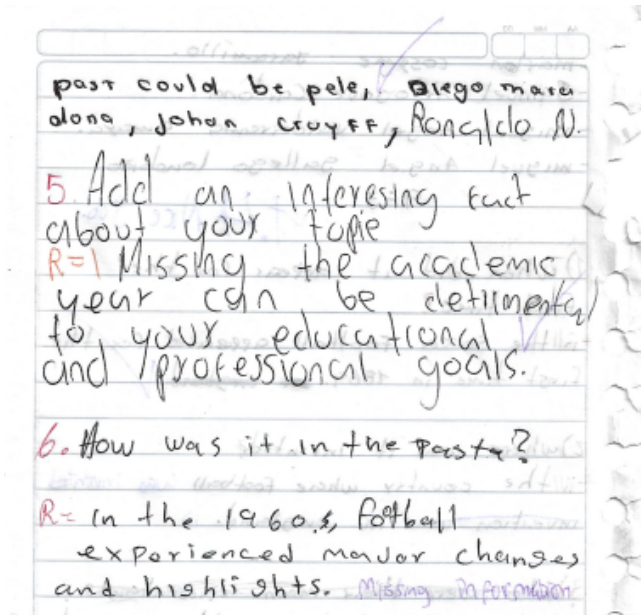 past could be pele, Diego mara
dona, johan cruyff, Ronaldo N.
5. Add an interesing fact
about your topic
R=1 Missing the academic
year can be detrimental
to your educational
and professional goals.
6. How was it in the pasta?
R= in the 1960.s, football
experienced major changes
and highlights. Missing information